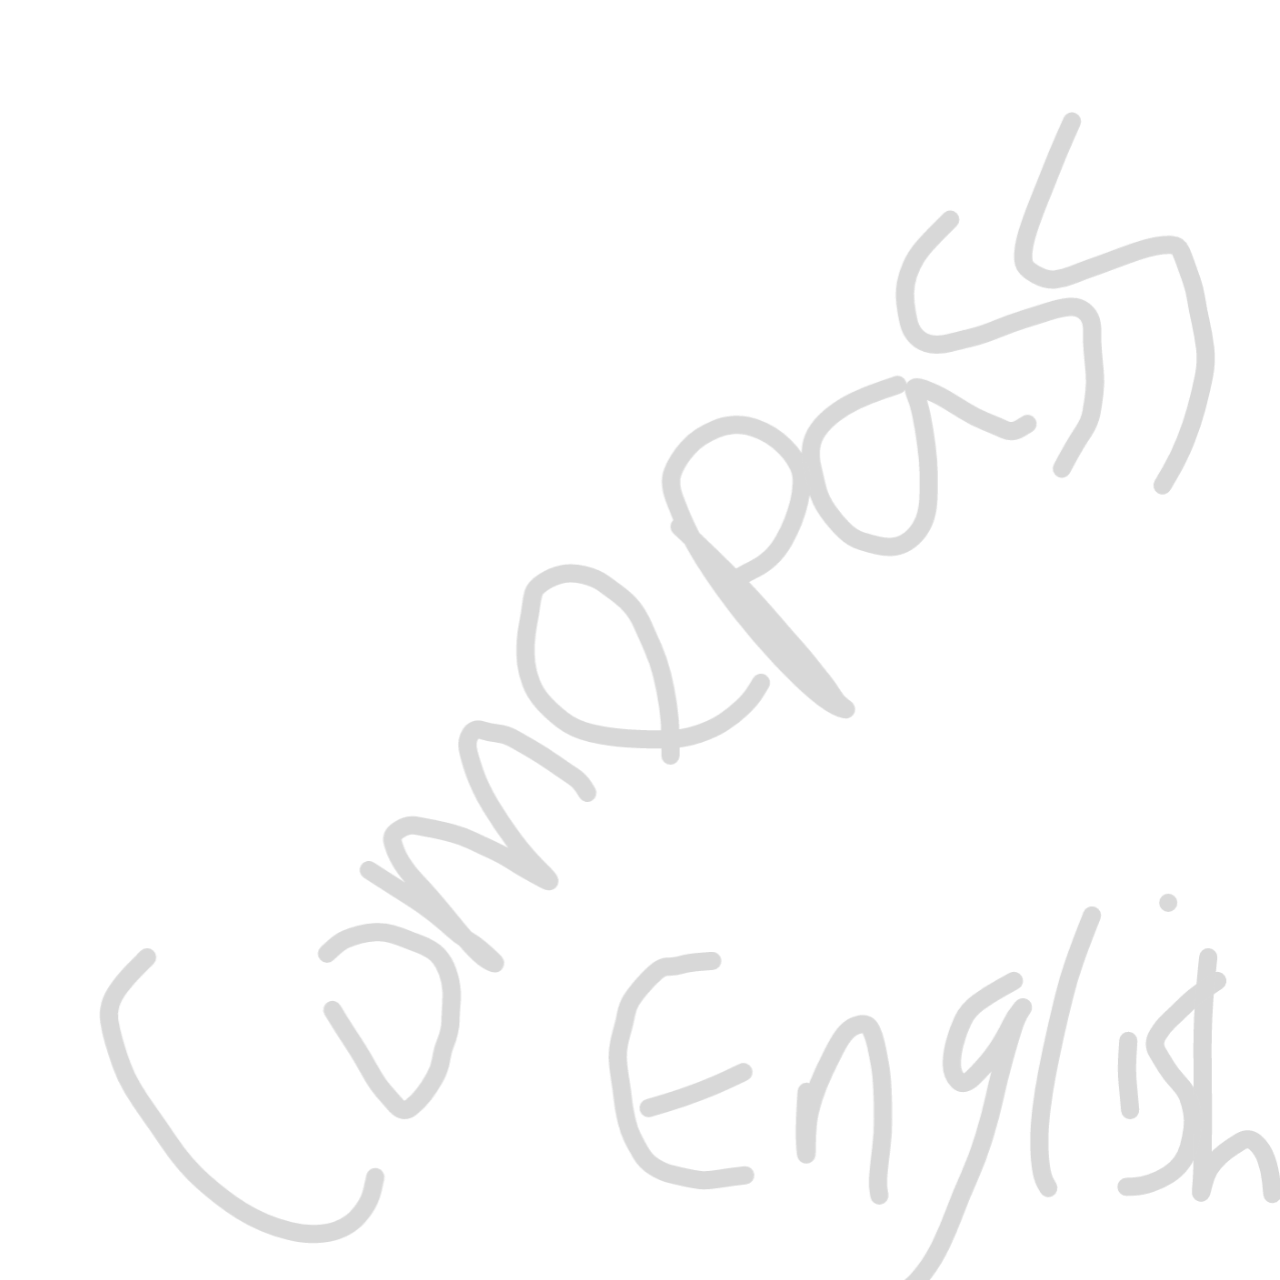 Comepass
English